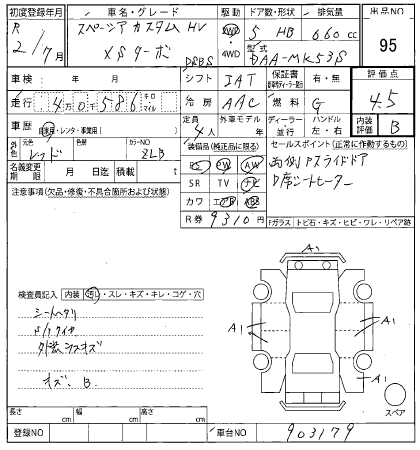 初度登録年月 車名・グレード 駆動 ドア数・形状 排気量 出品NO
R 2/7月 スペーシア カスタム HV XSターボ DRBS 2WD・4WD 5 HB 660cc 95
型式 DAA-MK53S
車検 年 月 シフト IAT 保証書 有・無 評価点
走行 4万0千586 キロ マイル 冷房 AAC 燃料 G 4.5
車歴 自家用・レンタ・事業用( ) 定員 4人 外車モデル 年 ディーラー 並行 ハンドル 左・右 内装評価 B
外色 元色 レッド 色替 カラーNO ZLB 装備品(純正品に限る) セールスポイント(正常に作動するもの)
名義変更期限 月 日迄 積載 t PS PW AW 両側Pスライドドア
注意事項(欠品・修復・不具合箇所および状態) SR TV ナビ D席シートヒーター
カワ エアB ABS
R券 9310円 Fガラス トビ石・キズ・ヒビ・ワレ・リペア跡
A1
A1 A1
A1
検査員記入 内装 汚レ・スレ・キズ・キレ・コゲ・穴
シートヘタリ
外装ウスキズ
キズ、B
スペア
長さ cm 幅 cm 高さ cm
登録NO 車台NO 903179